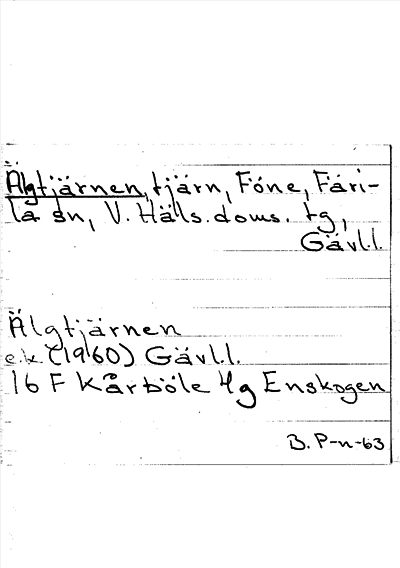 Älgtjärnen, tjärn, Föne, Färi-
la sn, V. Häls. doms. tg,
Gävl.l.
Älgtjärnen
e.k. (1960) Gävl.l.
16 F Kårböle 4g Enskogen
B. P-n-63